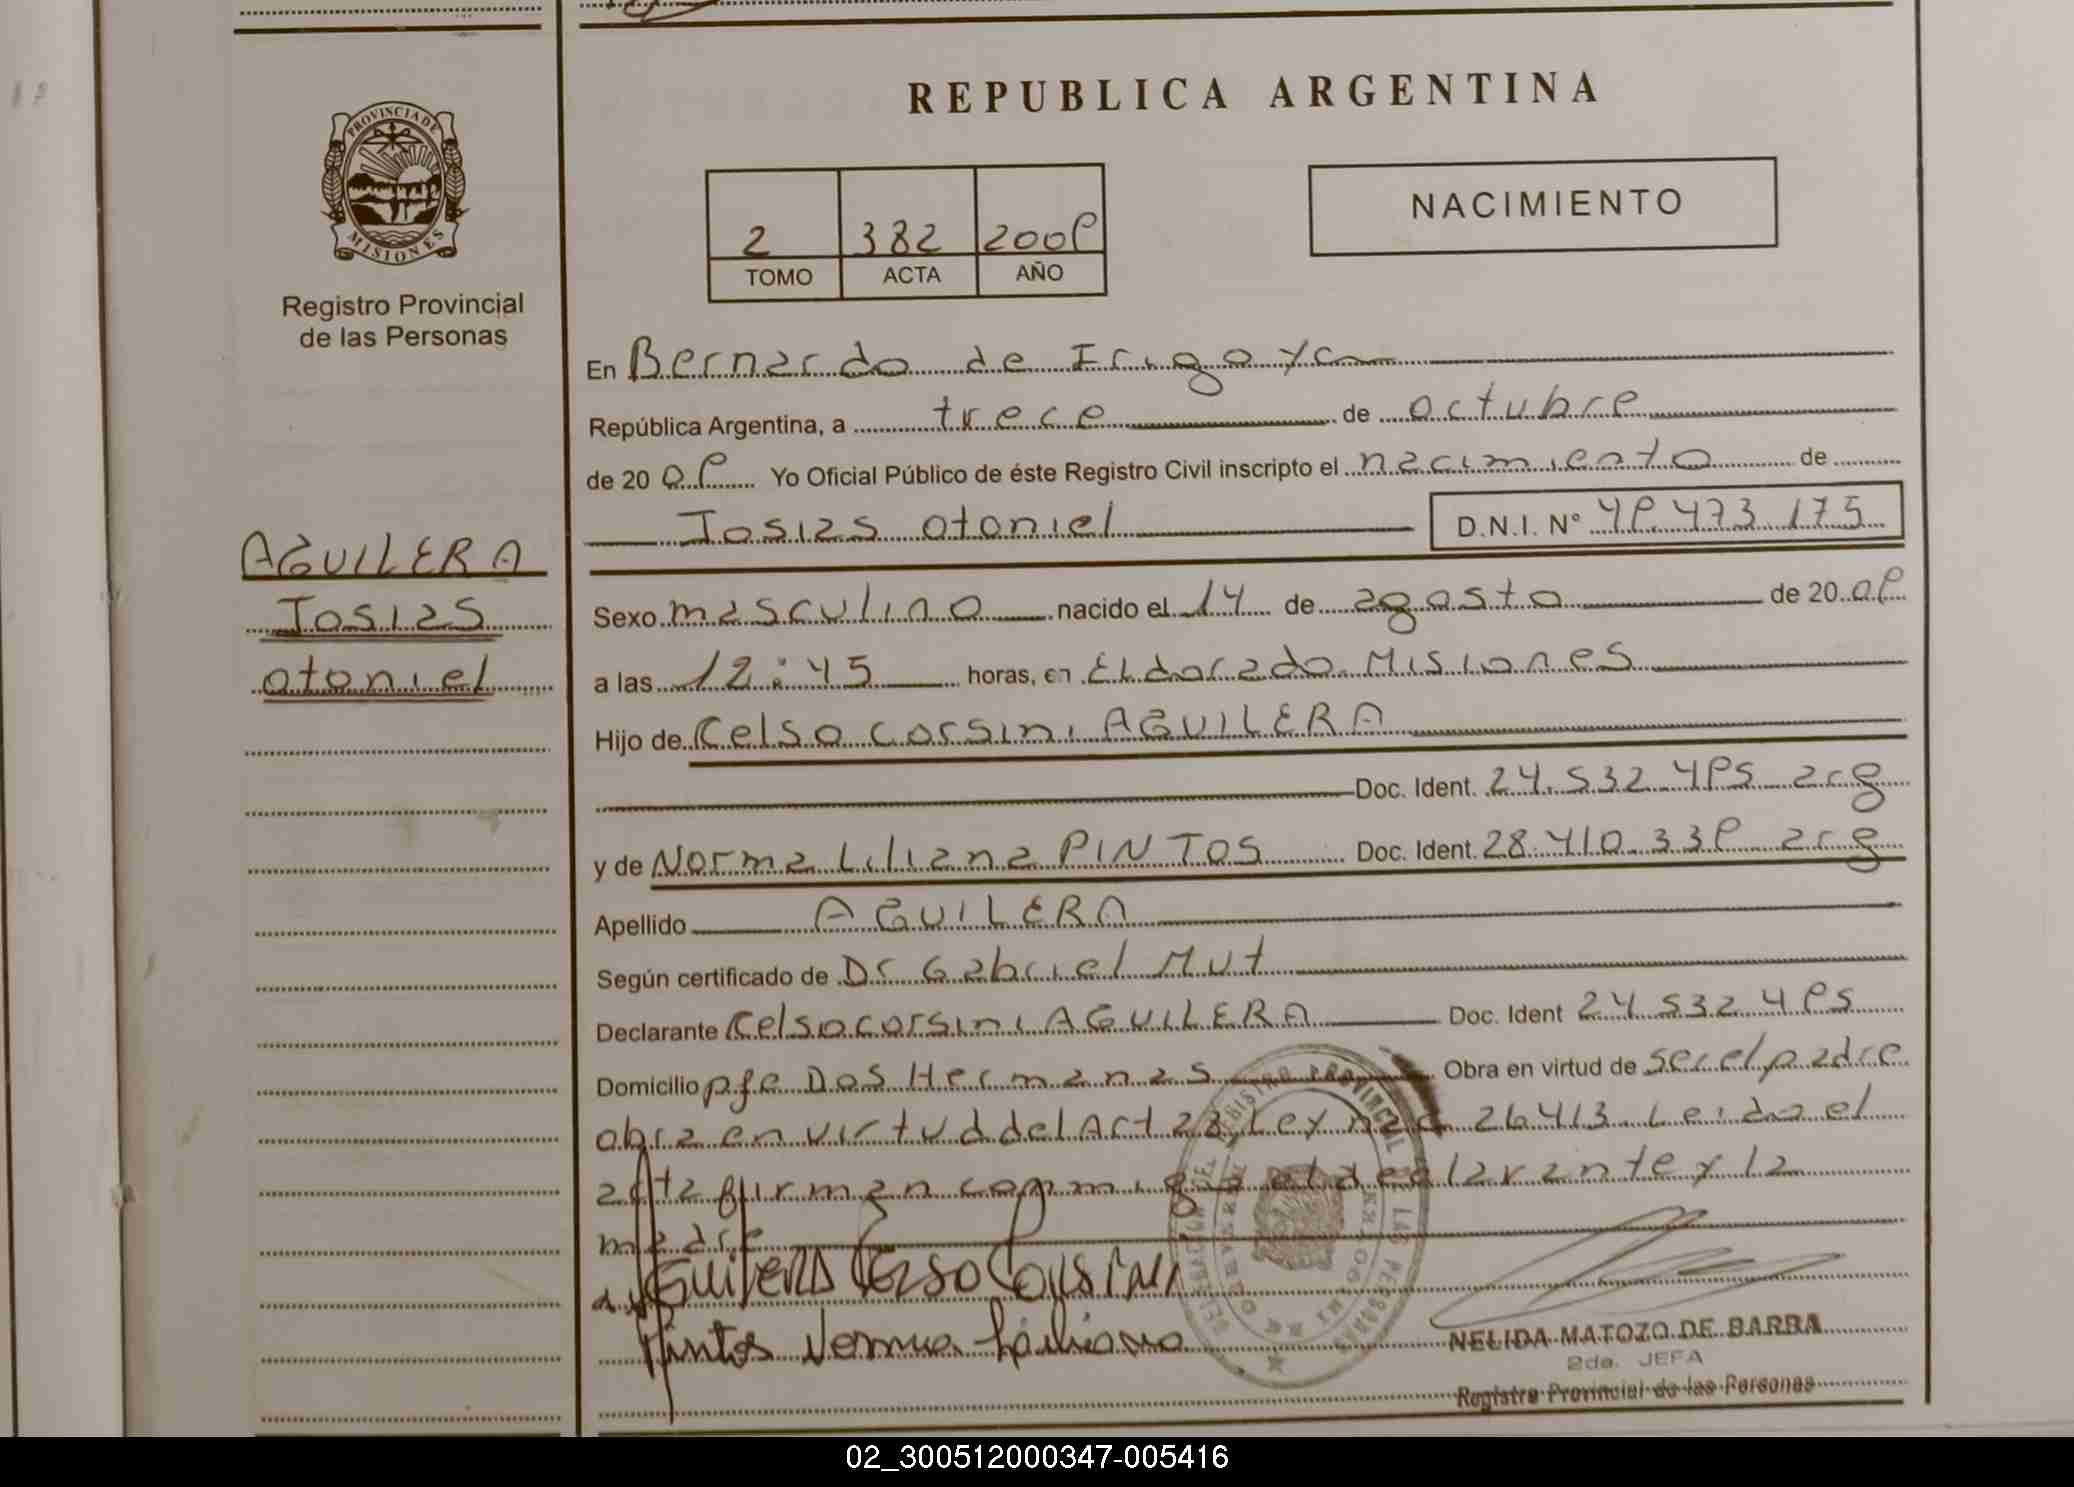 REPUBLICA ARGENTINA
PROVINCIA DE
MISIONES
Registro Provincial
de las Personas
NACIMIENTO
2 382 2009
TOMO ACTA AÑO
En Bernardo de Irigoyen
República Argentina, a trece de octubre
de 2009 Yo Oficial Público de éste Registro Civil inscripto el nacimiento de
Josias otoniel D.N.I. N° 49.473.175
AGUILERA
Josias
otoniel
Sexo masculino nacido el 14 de agosto de 2009
a las 12:45 horas, en Eldorado Misiones
Hijo de Celso corsini AGUILERA
Doc. Ident. 24.532.495 arg
y de Norma Liliana PINTOS Doc. Ident. 28.410.339 arg
Apellido AGUILERA
Según certificado de Dr Gabriel Mut
Declarante Celso corsini AGUILERA Doc. Ident 24.532.495
Domicilio pje Dos Hermanas Obra en virtud de ser el padre
obra en virtud del Art 28, Ley nro 26413. Leido el
acta firman conmigo el declarante y la
madre
AGUILERA CELSO CORSINI
Pintos Norma Liliana
NELIDA MATOZO DE BARBA
2da. JEFA
Registro Provincial de las Personas
REGISTRO PROVINCIAL DE LAS PERSONAS
02_300512000347-005416